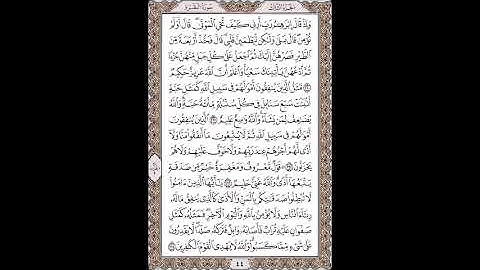 الجزء الثالث
سورة البقرة
وَإِذْ قَالَ إِبْرَٰهِـۧمُ رَبِّ أَرِنِى كَيْفَ تُحْىِ ٱلْمَوْتَىٰ قَالَ أَوَلَمْ
تُؤْمِن قَالَ بَلَىٰ وَلَٰكِن لِّيَطْمَئِنَّ قَلْبِى قَالَ فَخُذْ أَرْبَعَةً مِّنَ
ٱلطَّيْرِ فَصُرْهُنَّ إِلَيْكَ ثُمَّ ٱجْعَلْ عَلَىٰ كُلِّ جَبَلٍ مِّنْهُنَّ جُزْءًا
ثُمَّ ٱدْعُهُنَّ يَأْتِينَكَ سَعْيًا وَٱعْلَمْ أَنَّ ٱللَّهَ عَزِيزٌ حَكِيمٌ
مَّثَلُ ٱلَّذِينَ يُنفِقُونَ أَمْوَٰلَهُمْ فِى سَبِيلِ ٱللَّهِ كَمَثَلِ حَبَّةٍ
أَنۢبَتَتْ سَبْعَ سَنَابِلَ فِى كُلِّ سُنۢبُلَةٍ مِّا۟ئَةُ حَبَّةٍ وَٱللَّهُ
يُضَٰعِفُ لِمَن يَشَآءُ وَٱللَّهُ وَٰسِعٌ عَلِيمٌ ٱلَّذِينَ يُنفِقُونَ
أَمْوَٰلَهُمْ فِى سَبِيلِ ٱللَّهِ ثُمَّ لَا يُتْبِعُونَ مَآ أَنفَقُوا۟ مَنًّا وَلَآ
أَذًى لَّهُمْ أَجْرُهُمْ عِندَ رَبِّهِمْ وَلَا خَوْفٌ عَلَيْهِمْ وَلَا هُمْ
يَحْزَنُونَ قَوْلٌ مَّعْرُوفٌ وَمَغْفِرَةٌ خَيْرٌ مِّن صَدَقَةٍ
يَتْبَعُهَآ أَذًى وَٱللَّهُ غَنِىٌّ حَلِيمٌ يَٰٓأَيُّهَا ٱلَّذِينَ ءَامَنُوا۟
لَا تُبْطِلُوا۟ صَدَقَٰتِكُم بِٱلْمَنِّ وَٱلْأَذَىٰ كَٱلَّذِى يُنفِقُ مَالَهُۥ
رِئَآءَ ٱلنَّاسِ وَلَا يُؤْمِنُ بِٱللَّهِ وَٱلْيَوْمِ ٱلْءَاخِرِ فَمَثَلُهُۥ كَمَثَلِ
صَفْوَانٍ عَلَيْهِ تُرَابٌ فَأَصَابَهُۥ وَابِلٌ فَتَرَكَهُۥ صَلْدًا لَّا يَقْدِرُونَ
عَلَىٰ شَىْءٍ مِّمَّا كَسَبُوا۟ وَٱللَّهُ لَا يَهْدِى ٱلْقَوْمَ ٱلْكَٰفِرِينَ
٤٤